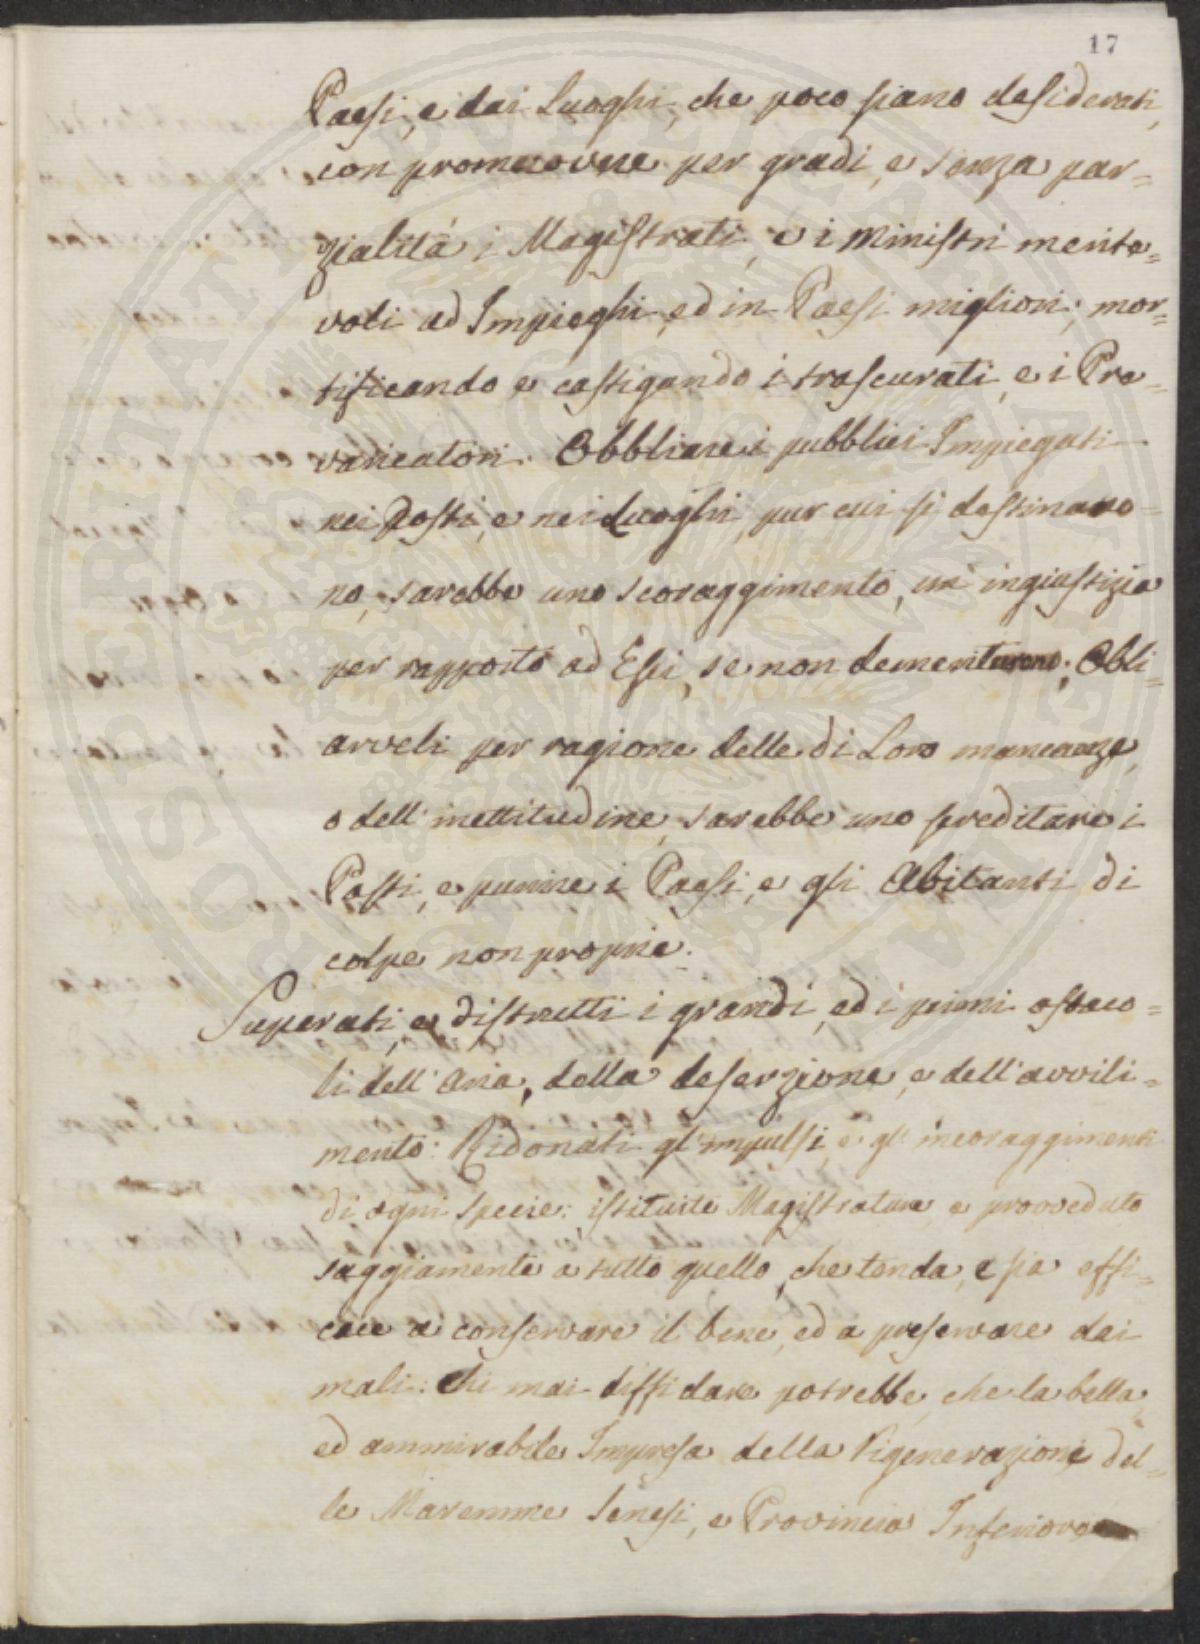 17
Paesi, e dai Luoghi, che poco siano desiderati,
con promuovere per gradi, e senza par=
zialità i Magistrati, e i Ministri merite=
voli ad Impieghi, ed in Paesi migliori; mor=
tificando e castigando i trascurati, e i Pre=
varicatori. Obbliare i pubblici Impiegati
nei Posti, e nei Luoghi, pur cui si destinaro=
no, sarebbe uno scoraggimento, un' ingiustizia
per rapporto ad Essi, se non demeritarono; Obli=
arveli per ragione delle di Loro mancanze,
o dell' inettitudine, sarebbe uno screditare i
Posti, e punire i Paesi, e gli Abitanti di
colpe non proprie.
Superati, e distrutti i grandi, ed i primi ostaco=
li dell' Aria, della deserzione, e dell' avvili=
mento: Ridonati gl' impulsi, e gl' incoraggimenti
di ogni specie: istituite Magistrature, e provveduto
saggiamente a tutto quello, che tenda, e sia effi=
cace a conservare il bene, ed a preservare dai
mali: Chi mai diffidare potrebbe, che la bella,
ed ammirabile Impresa della Rigenerazione del=
le Maremme Senesi, e Provincia Inferiore